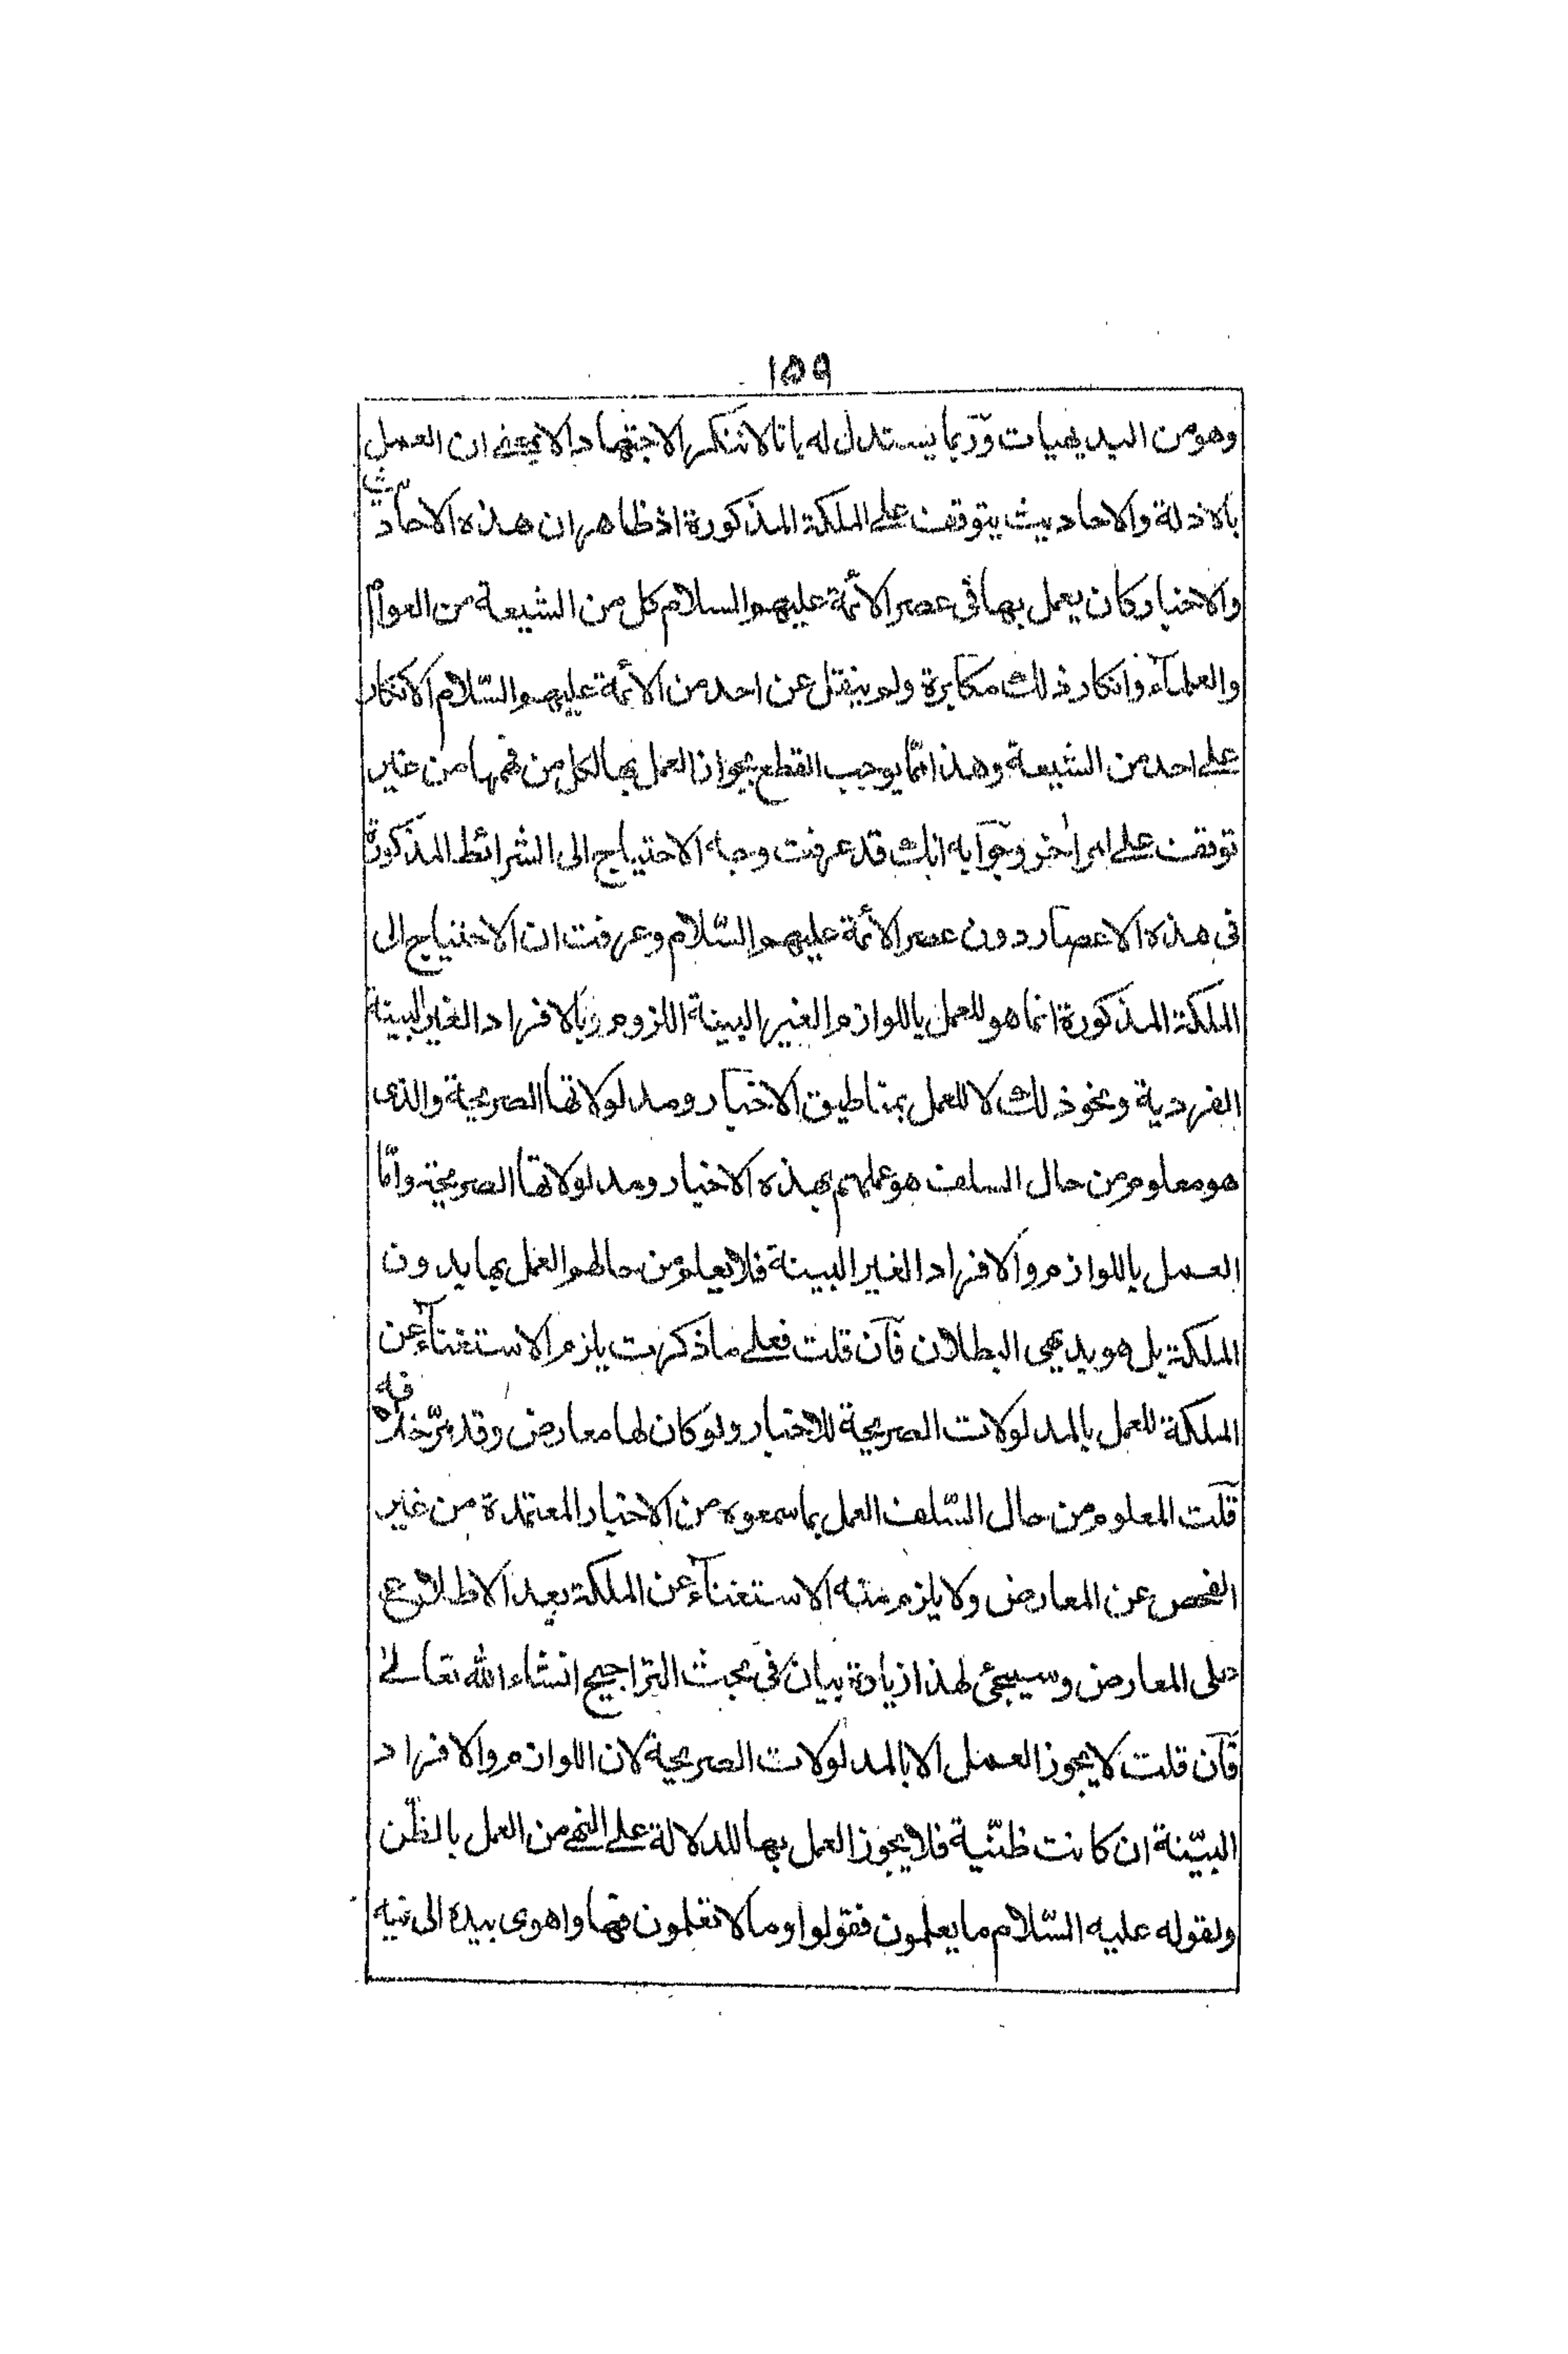 ١٥٩
وهو من البديهيات وربما يستدل له بانا لا ننكر الاجتهاد الا بمعنى ان العمل
بالادلة والاحاديث يتوقف على الملكة المذكورة اذ ظاهر ان هذه الاحاديث
والاخبار كان يعمل بها فى عصر الأئمة عليهم السلام كل من الشيعة من العوام
والعلمآء وانكار ذلك مكابرة ولم ينقل عن احد من الأئمة عليهم السّلام الانكار
على احد من الشيعة وهذا ممّا يوجب القطع بجواز العمل بها لكل من فهمها من غير
توقف على امر اخر وجوابه انك قد عرفت وجه الاحتياج الى الشرائط المذكورة
فى هذه الاعصار دون عصر الأئمة عليهم السّلام وعرفت ان الاحتياج الى
الملكة المذكورة انما هو للعمل باللوازم الغير البينة اللزوم وبالافراد الغير البينة
الفردية ونحو ذلك لا للعمل بمناطيق الاخبار ومدلولاتها الصريحة والذى
هو معلوم من حال السلف هو عملهم بهذه الاخبار ومدلولاتها الصريحة وامّا
العمل باللوازم والافراد الغير البينة فلا يعلم من حالهم العمل بها بدون
الملكة بل هو بديهى البطلان فان قلت فعلى ما ذكرت يلزم الاستغنآء عن
الملكة للعمل بالمدلولات الصريحة للاخبار ولو كان لها معارض وقد مرّ خلافه
قلت المعلوم من حال السّلف العمل بما سمعوه من الاخبار المعتمدة من غير
الفحص عن المعارض ولا يلزم منه الاستغنآء عن الملكة بعد الاطلاع
على المعارض وسيجئ لهذا زيادة بيان فى بحث التراجيح انشاء الله تعالى
فان قلت لا يجوز العمل الا بالمدلولات الصريحة لان اللوازم والافراد
البيّنة ان كانت ظنّية فلا يجوز العمل بها للدلالة على النهى من العمل بالظّن
ولقوله عليه السّلام ما يعلمون فقولوا وما لا تعلمون فها واهوى بيده الى فيه